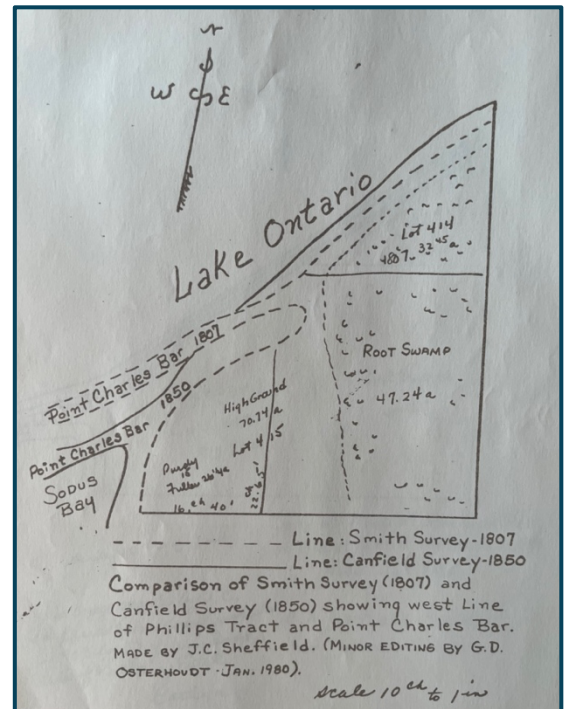 N
W E
S
Lake Ontario
Lot 414
1807. 32 45 a
Point Charles Bar 1807
1850
Point Charles Bar
SODUS
BAY
ROOT SWAMP
47.24 a
High Ground
70.74 a
Lot 415
16 ch 40'
Line: Smith Survey-1807
Line: Canfield Survey-1850
Comparison of Smith Survey (1807) and
Canfield Survey (1850) showing west Line
of Phillips Tract and Point Charles Bar.
MADE BY J.C. Sheffield. (MINOR EDITING BY G.D.
OSTERHOUDT - JAN. 1980).
scale 10 ch to 1 in